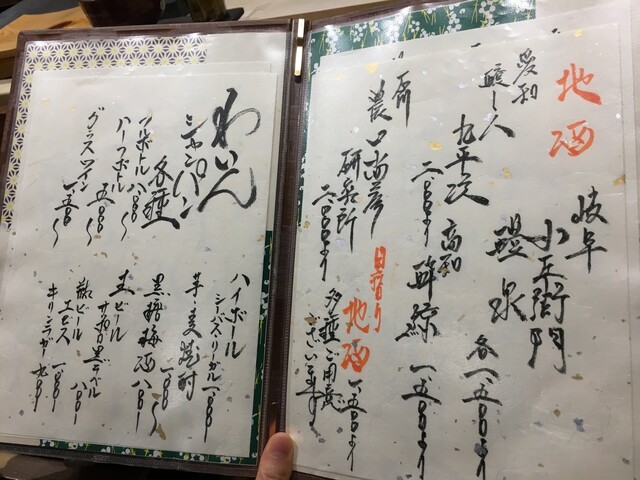 地酒
岐阜
小左衛門
醴泉 各一、五〇〇より
愛知
醸し人
九平次 二、〇〇〇より
高知
酔鯨 一、五〇〇より
石川
農口尚彦
研究所 二、〇〇〇より
日替り
地酒 一、五〇〇より
多種ご用意
ございます
わいん
シャンパン
多種
フルボトル 八、〇〇〇〜
ハーフボトル 五、〇〇〇〜
グラスワイン 一、五〇〇〜
ハイボール
シーバスリーガル 一、〇〇〇〜
芋 麦 焼酎
黒糖梅酒 八〇〇〜
生ビール
サッポロ黒ラベル 八〇〇
瓶ビール
エビス 一、〇〇〇
キリンラガー 九〇〇